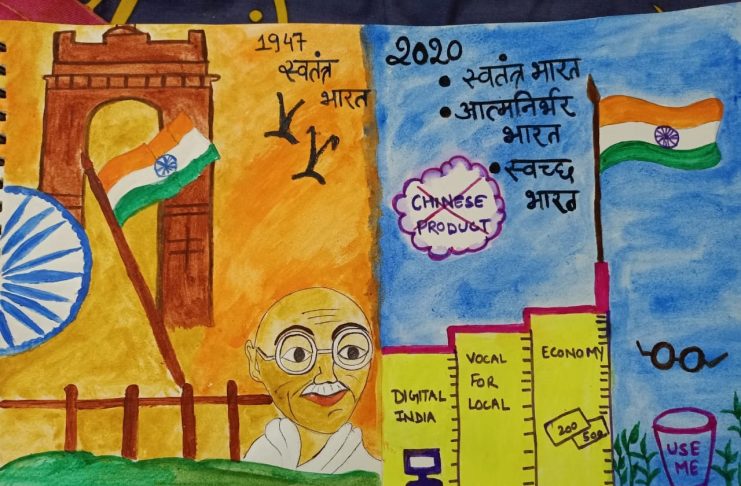 1947
स्वतंत्र
भारत
2020
• स्वतंत्र भारत
• आत्मनिर्भर
भारत
• स्वच्छ
भारत
CHINESE
PRODUCT
DIGITAL
INDIA
VOCAL
FOR
LOCAL
ECONOMY
200
500
USE
ME